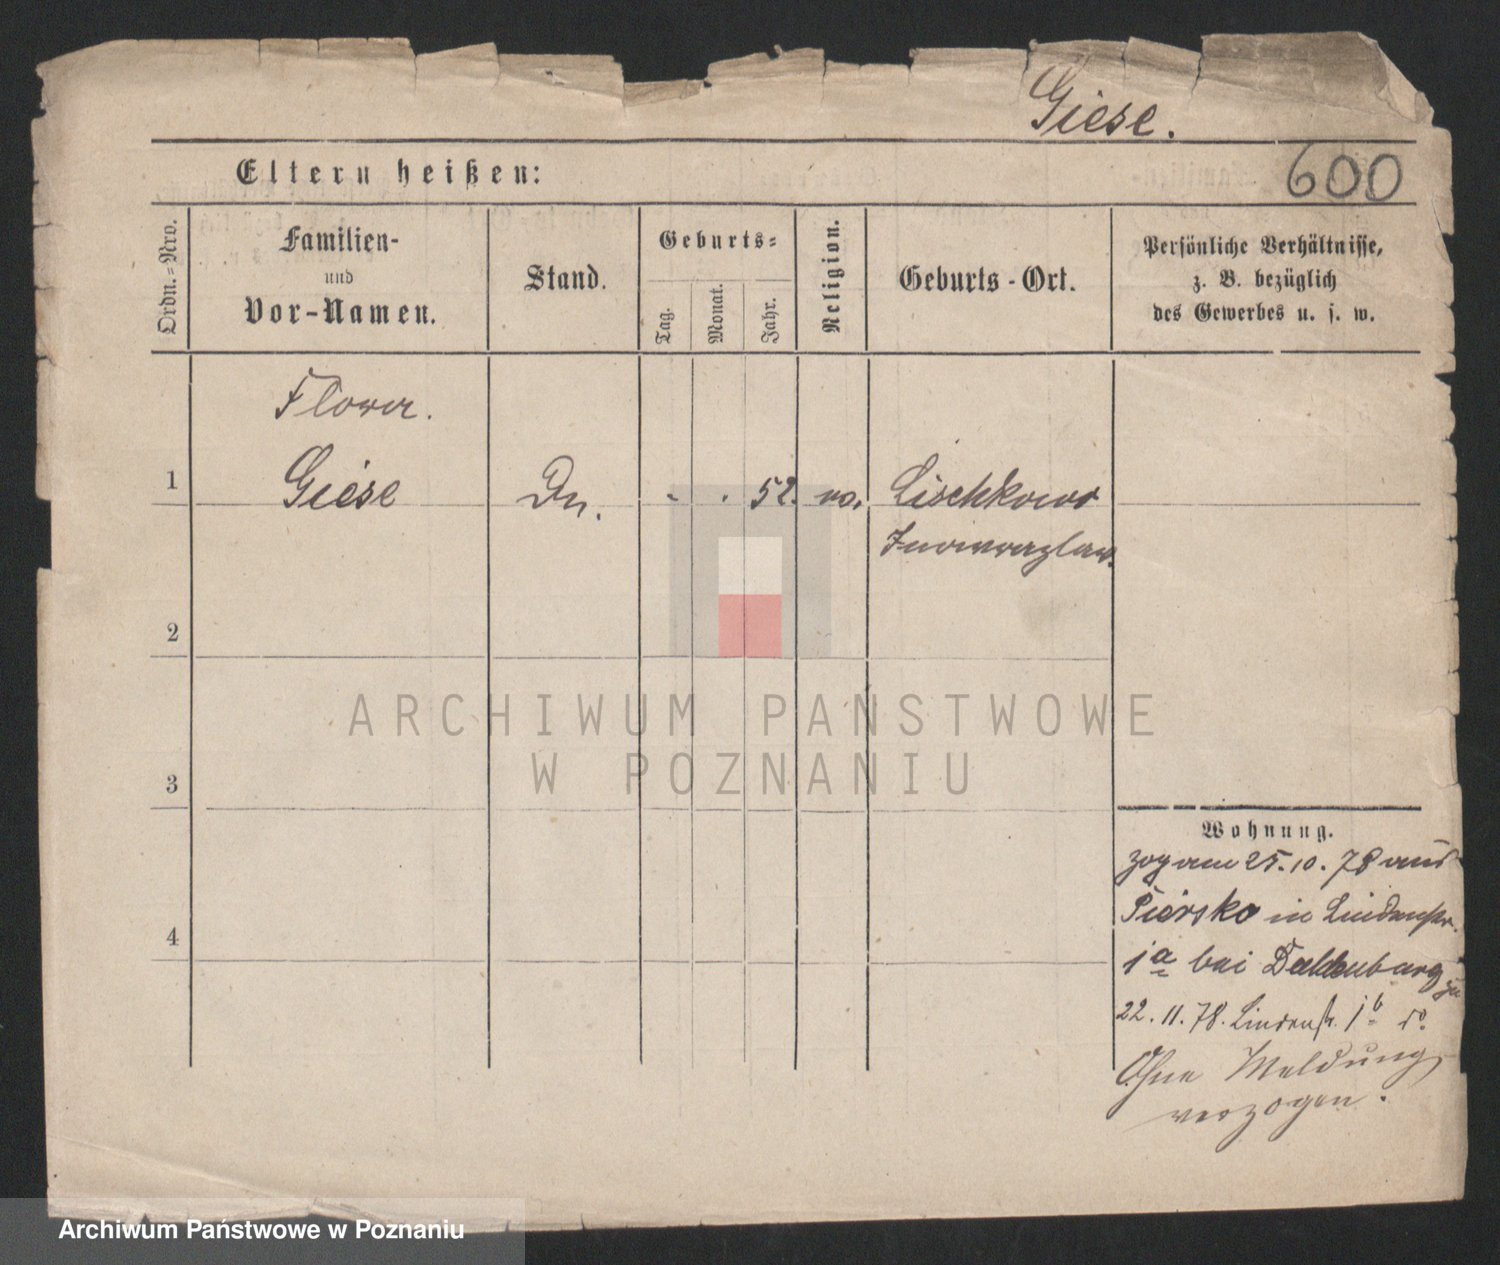 Giese.
Eltern heißen:
600
Ordn.-Nro.
Familien-
und
Vor-Namen.
Stand.
Geburts-
Tag.
Monat.
Jahr.
Religion.
Geburts-Ort.
Persönliche Verhältnisse,
z. B. bezüglich
des Gewerbes u. s. w.
1
Giese
52.
Lischkowo
Inowrazlaw.
2
3
4
ARCHIWUM PAŃSTWOWE
W POZNANIU
Wohnung.
zog am 25.10.78 aus
in Lindenstr.
1a bei
22.11.78. Lindenstr. 1b do
Ohne Meldung
verzogen.
Archiwum Państwowe w Poznaniu